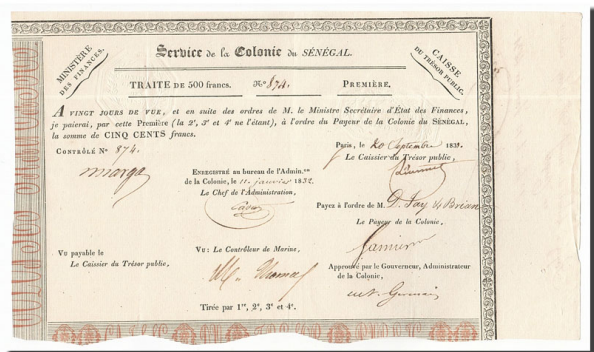 MINISTÈRE
DES FINANCES.
Service de la Colonie du SÉNÉGAL.
CAISSE
DU TRÉSOR PUBLIC.
TRAITE DE 500 francs. No 874. PREMIÈRE.
A VINGT JOURS DE VUE, et en suite des ordres de M. le Ministre Secrétaire d'État des Finances,
je paierai, par cette Première (la 2e, 3e et 4e ne l'étant), à l'ordre du Payeur de la Colonie du SÉNÉGAL,
la somme de CINQ CENTS francs.
Paris, le 20 Septembre 1831.
Le Caissier du Trésor public,
CONTRÔLÉ No 874.
ENREGISTRÉ au bureau de l'Admin.on
de la Colonie, le 11 janvier 1832.
Le Chef de l'Administration,
Payez à l'ordre de M. D. Pay
Le Payeur de la Colonie,
VU payable le
Le Caissier du Trésor public,
VU: Le Contrôleur de Marine,
Approuvé par le Gouverneur, Administrateur
de la Colonie,
Germain
Tirée par 1re, 2e, 3e et 4e.